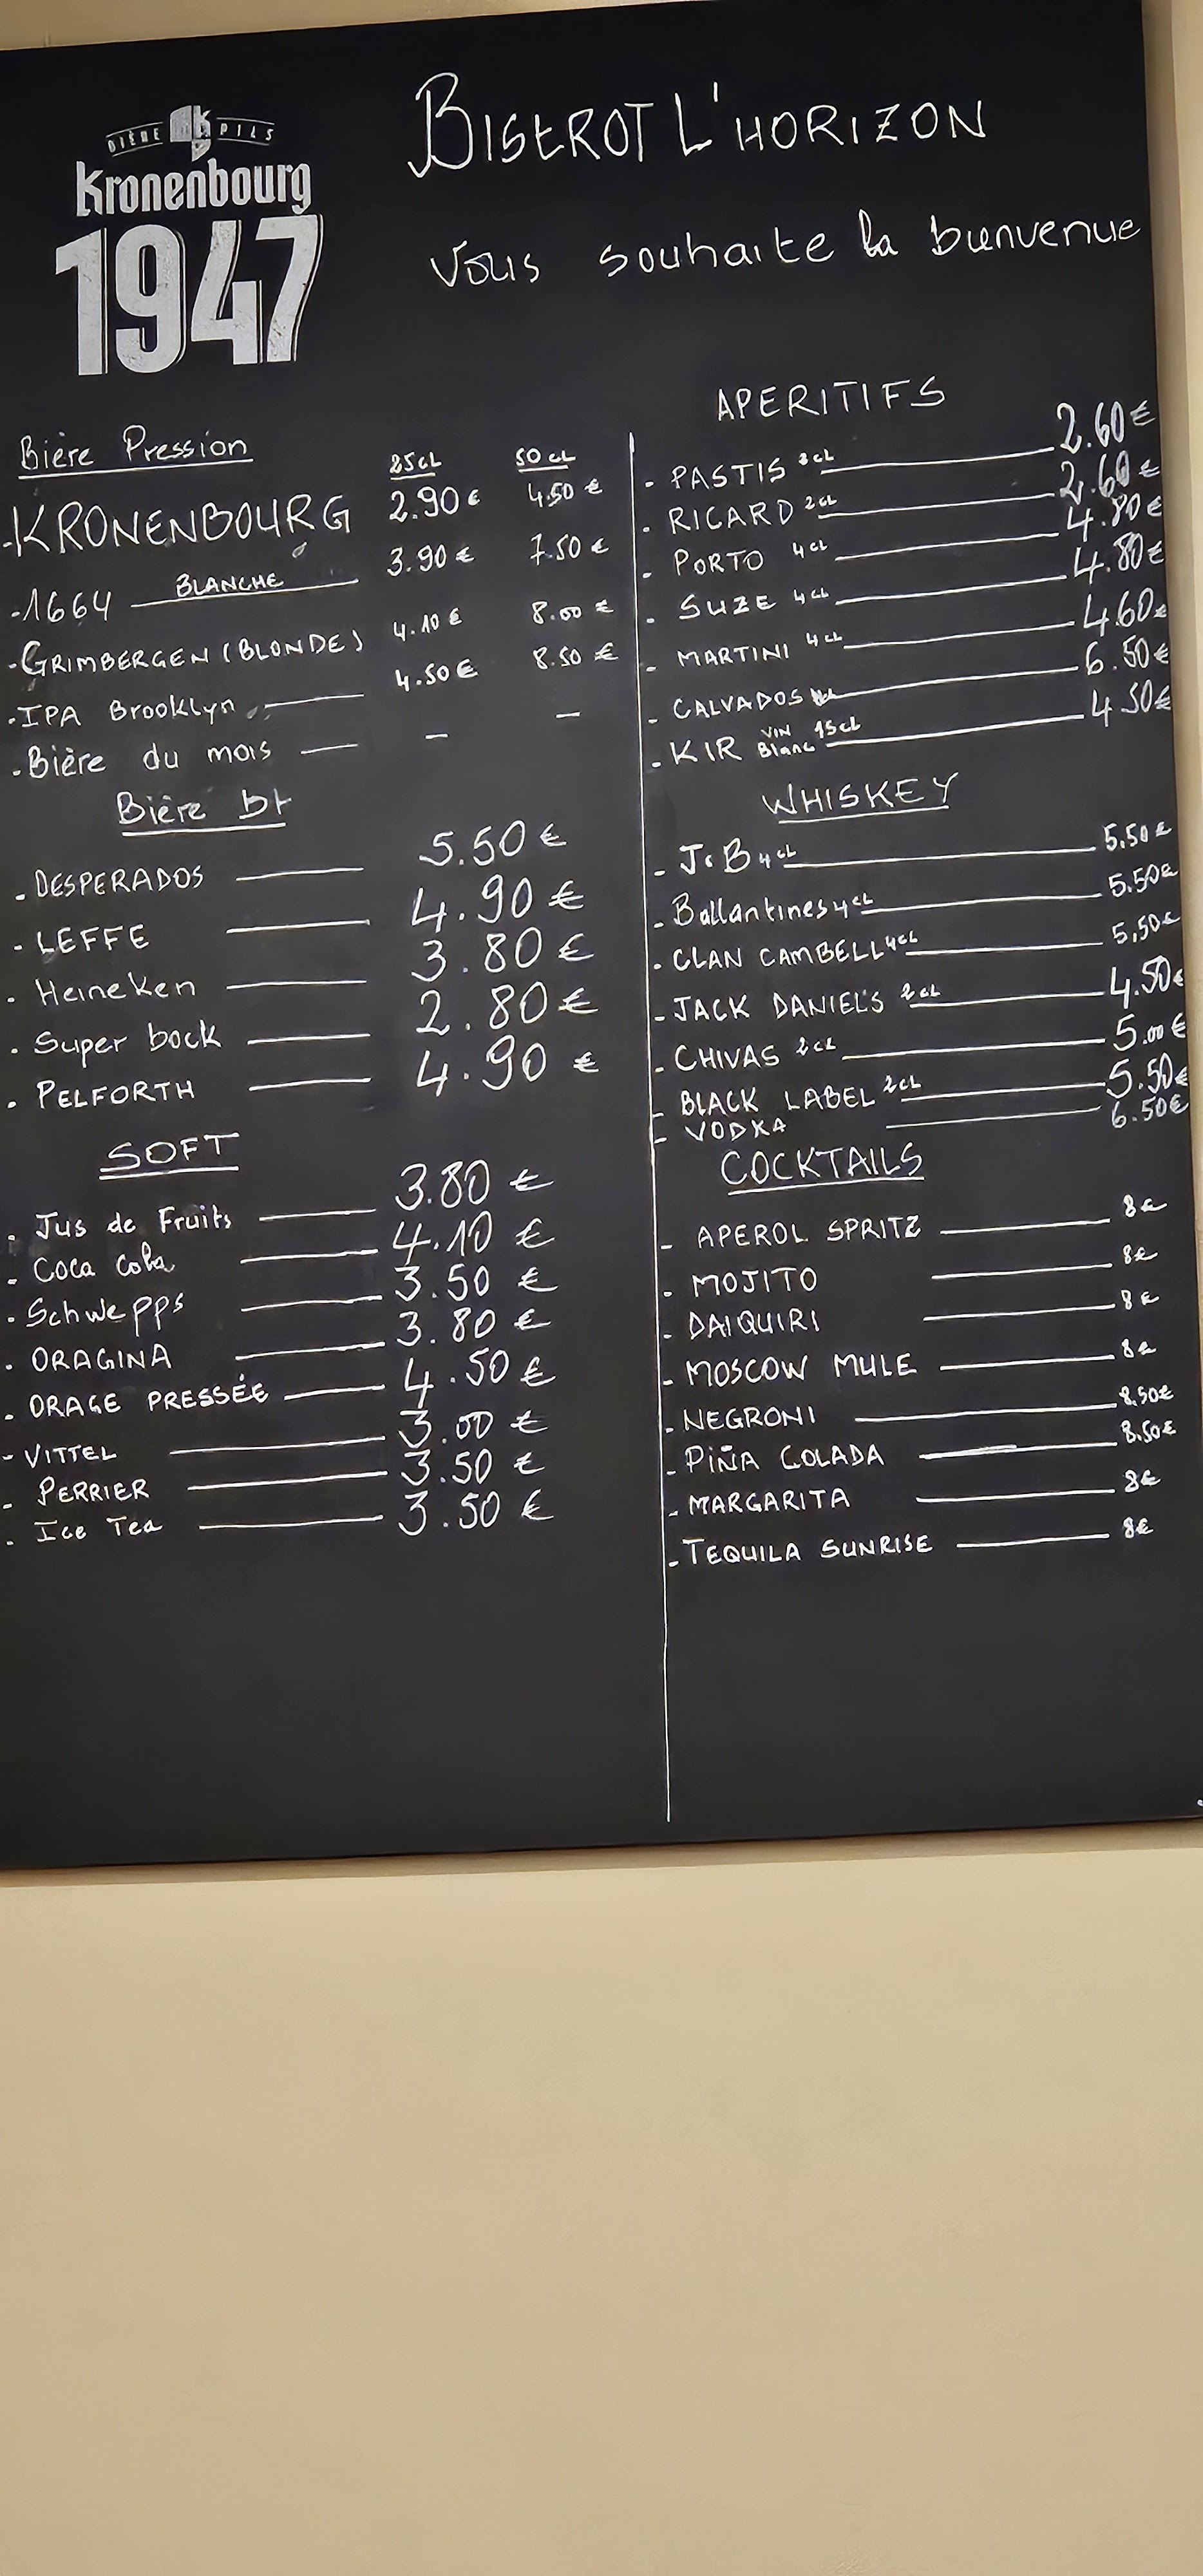 BIÈRE PILS
Kronenbourg
1947
BISTROT L'HORIZON
Vous souhaite la bienvenue
Bière Pression
25cL 50cL
-KRONENBOURG 2.90€ 4.50€
-1664 BLANCHE 3.90€ 7.50€
-GRIMBERGEN (BLONDE) 4.10€ 8.00€
-IPA Brooklyn 4.50€ 8.50€
-Bière du mois — - -
Bière bt
- DESPERADOS 5.50€
- LEFFE 4.90€
- Heineken 3.80€
- Super bock 2.80€
- PELFORTH 4.90€
SOFT
- Jus de Fruits 3.80€
- Coca Cola 4.10€
- Schwepps 3.50€
- ORAGINA 3.80€
- ORAGE PRESSÉE 4.50€
- VITTEL 3.00€
- PERRIER 3.50€
- Ice Tea 3.50€
APERITIFS
- PASTIS cL 2.60€
- RICARD 2cL 2.60€
- PORTO 4cL 4.80€
- SUZE 4cL 4.80€
- MARTINI 4cL 4.60€
- CALVADOS 6.50€
- KIR VIN Blanc 15cL 4.50€
WHISKEY
- J&B 4cL 5.50€
- Ballantines 4cL 5.50€
- CLAN CAMBELL 4cL 5,50€
- JACK DANIEL'S 2cL 4.50€
- CHIVAS 2cL 5.00€
- BLACK LABEL 2cL 5.50€
- VODKA 6.50€
COCKTAILS
- APEROL SPRITZ 8€
- MOJITO 8€
- DAIQUIRI 8€
- MOSCOW MULE 8€
- NEGRONI 8.50€
- PIÑA COLADA 8.50€
- MARGARITA 8€
- TEQUILA SUNRISE 8€